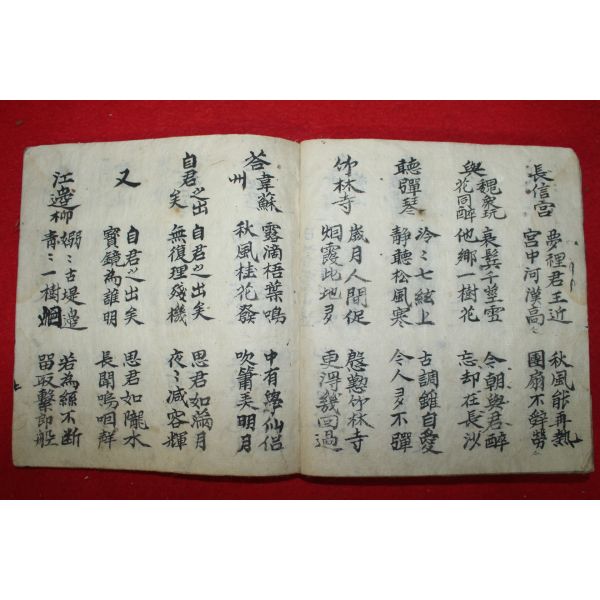 長信宮
夢裡君王近
宮中河漢高
秋風能再熱
團扇不辤勞
與魏衆玩
花同醉
衰鬂千莖雪
他鄉一樹花
今朝與君醉
忘却在長沙
聽彈琴
冷〻七絃上
靜聽松風寒
古調雖自愛
今人多不彈
竹林寺
歲月人間促
烟霞此地多
慇懃竹林寺
更得幾回過
答韋蘇
州
露滴梧葉鳴
秋風桂花發
中有學仙侶
吹簫美明月
自君之出
矣
自君之出矣
無復理殘機
思君如滿月
夜〻减容輝
又
自君之出矣
寶鏡為誰明
思君如隴水
長聞嗚咽聲
江邊柳
嫋〻古堤邊
青〻一樹烟
若為絲不断
留取繫郎船